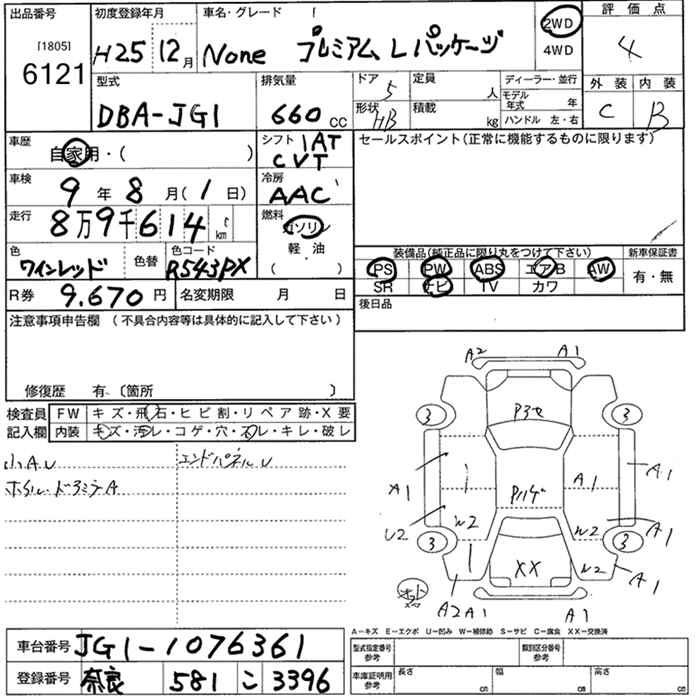 出品番号
[1805]
6121
初度登録年月
H25 12月
車名・グレード
None プレミアム Lパッケージ
2WD
4WD
評価点
4
外装 内装
C B
型式
DBA-JG1
排気量
660 CC
ドア 5
形状 HB
定員 人
積載 kg
ディーラー・並行
モデル年式 年
ハンドル 左・右
車歴
自家用・( )
シフト IAT
CVT
セールスポイント(正常に機能するものに限ります)
車検
9年 8月(1日)
冷房
AAC
走行
8万9千614 km
燃料
ガソリン
軽・油
( )
色
ワインレッド
色替
色コード
R543PX
装備品(純正品に限り丸をつけて下さい)
PS PW ABS エアB AW
SR ナビ TV カワ
新車保証書
有・無
R券 9.670 円
名変期限 月 日
後日品
注意事項申告欄 (不具合内容等は具体的に記入して下さい)
修復歴 有 〔箇所 〕
検査員
記入欄
FW キズ・飛石・ヒビ割・リペア跡・X要
内装 キズ・汚レ・コゲ・穴・スレ・キレ・破レ
小AU
エンドパネルU
A2 A1
3 3
P3セ
A1
A1
A1
U2
W2
W2
A1
3 3
XX
W2
A1
A2 A1
A1
A-キズ E-エクボ U-凹み W-補修跡 S-サビ C-腐食 XX-交換済
車台番号 JG1-1076361
登録番号 奈良 581 こ 3396
型式指定番号
参考
類別区分番号
参考
車庫証明用
参考
長さ cm
幅 cm
高さ cm